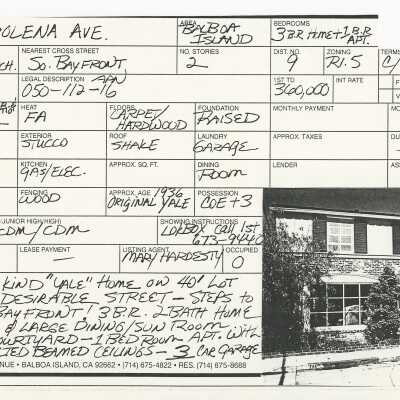 OLENA AVE. AREA BALBOA ISLAND BEDROOMS 3 BR Home + 1 B.R. APT.
NEAREST CROSS STREET So. Bayfront NO. STORIES 2 DIST. NO. 9 ZONING R1.5 TERMS
LEGAL DESCRIPTION APN 050-112-16 1ST TD 360,000 INT RATE
HEAT FA FLOORS CARPET/HARDWOOD FOUNDATION RAISED MONTHLY PAYMENT
EXTERIOR STUCCO ROOF SHAKE LAUNDRY GARAGE APPROX. TAXES
KITCHEN GAS/ELEC. APPROX. SQ. FT. DINING ROOM LENDER
FENCING WOOD APPROX. AGE 1936 ORIGINAL YALE POSSESSION COE+3
(JUNIOR HIGH/HIGH) CDM/CDM SHOWING INSTRUCTIONS LOKBOX CALL 1ST 673-9440
LEASE PAYMENT — LISTING AGENT MARY HARDESTY OCCUPIED O
KIND "YALE" HOME ON 40' LOT
DESIRABLE STREET - STEPS TO
BAYFRONT! 3 B.R. 2 BATH HOME
& LARGE DINING/SUN ROOM
COURTYARD - 1 BEDROOM APT. WITH
BEAMED CEILINGS - 3 CAR GARAGE
NUE • BALBOA ISLAND, CA 92662 • (714) 675-4822 • RES. (714) 675-8688